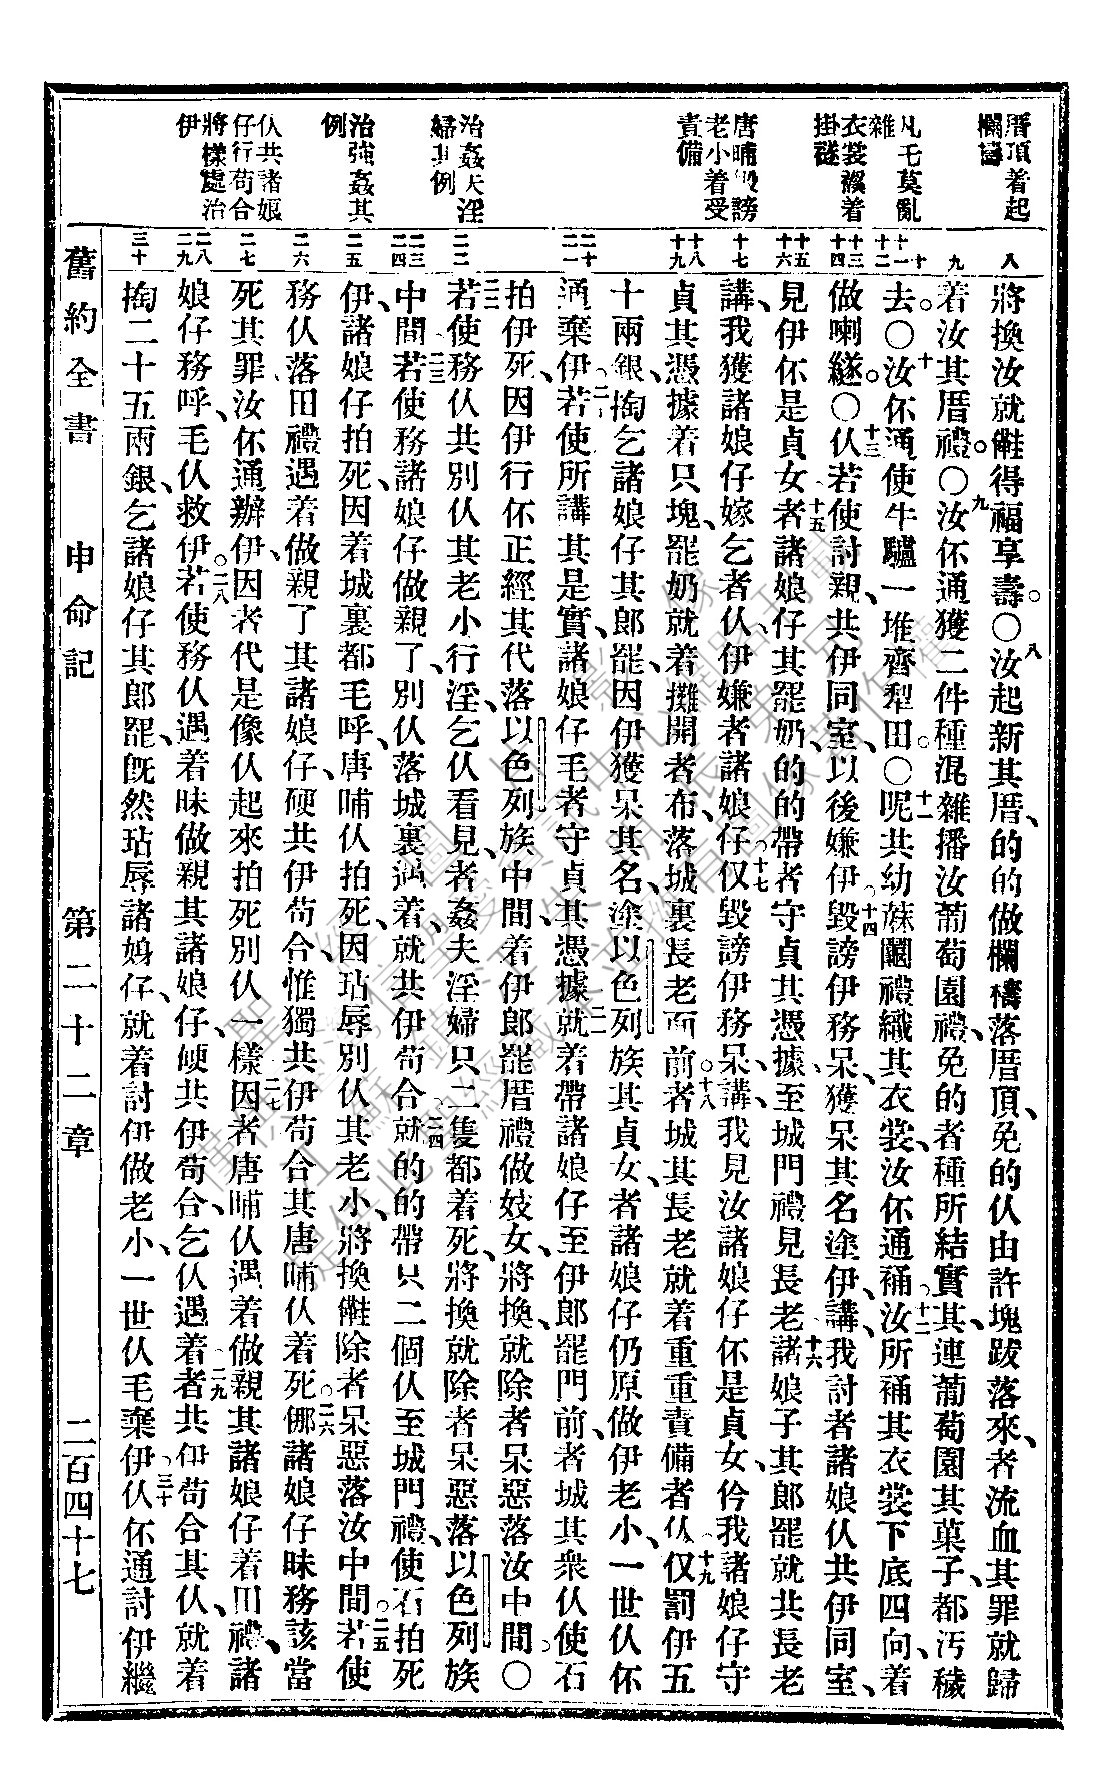 厝頂着起
欄檮
凡乇莫亂
雜
衣裳襏着
掛襚
唐晡毀謗
老小着受
責備
治姦夫淫
婦其例
治強姦其
例
仈共諸娘
仔行苟合
將樣處治
伊
八
九
十
十一
十二
十三
十四
十五
十六
十七
十八
十九
二十
二一
二二
二三
二四
二五
二六
二七
二八
二九
三十
將換汝就𣍐得福享壽。○八汝起新其厝、的的做欄檮落厝頂、免的仈由許塊跋落來、者流血其罪就歸
着汝其厝禮。○九汝伓通獲二件種混雜播汝葡萄園禮、免的者種所結實其、連葡萄園其菓子、都汚穢
去。○十汝伓通使牛驢一堆齊犁田。○十一呢共幼蔴𨷺禮織其衣裳、汝伓通補。十二汝所補其衣裳下底四向、着
做喇𨗿。○十三仈若使討親、共伊同室、以後嫌伊、十四毀謗伊務呆、獲呆其名塗伊、講、我討者諸娘仈共伊同室、
見伊伓是貞女、十五者諸娘仔其罷奶、的的帶者守貞其憑據、至城門禮見長老、十六諸娘子其郎罷就共長老
講、我獲諸娘仔嫁乞者仈、伊嫌者諸娘仔、十七仅毀謗伊務呆、講、我見汝諸娘仔伓是貞女、仱我諸娘仔守
貞其憑據着只塊、罷奶就着攤開者布、落城裏長老面前、十八者城其長老就着重重責備者仈、十九仅罰伊五
十兩銀、掏乞諸娘仔其郎罷、因伊獲呆其名、塗以色列族其貞女、者諸娘仔仍原做伊老小、一世仈伓
通棄伊。二十若使所講其是實、諸娘仔毛者守貞其憑據、二一就着帶諸娘仔至伊郎罷門前、者城其衆仈使石
拍伊死、因伊行伓正經其代、落以色列族中間、着伊郎罷厝禮做妓女、將換、就除者呆惡落汝中間。○
二二若使務仈共別仈其老小行淫、乞仈看見、者姦夫淫婦只二隻都着死、將換就除者呆惡落以色列族
中間。二三若使務諸娘仔做親了、別仈落城裏遇着、就共伊苟合、二四就的的帶只二個仈至城門禮、使石拍死
伊、諸娘仔拍死、因着城裏都毛呼、唐晡仈拍死、因玷辱別仈其老小、將換𣍐除者呆惡落汝中間。二五若使
務仈落田禮遇着做親了其諸娘仔、硬共伊苟合、惟獨共伊苟合其唐晡仈着死。○二六㑚諸娘仔昧務該當
死其罪、汝伓通辦伊、因者代是像仈起來拍死別仈一樣、二七因者唐晡仈遇着做親其諸娘仔着田禮、諸
娘仔務呼、毛仈救伊。二八若使務仈遇着昧做親其諸娘仔、硬共伊苟合、乞仈遇着、二九者共伊苟合其仈、就着
掏二十五兩銀、乞諸娘仔其郎罷、旣然玷辱諸娘仔、就着討伊做老小、一世仈毛棄伊、三十仈伓通討伊繼
舊約全書　申命記　第二十二章　二百四十七